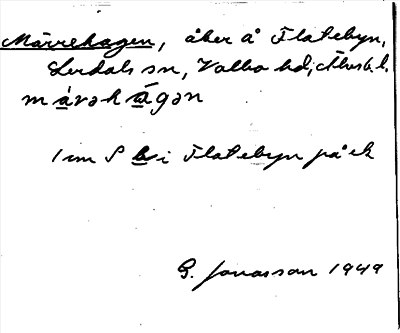 Märrehagen, åker å Flatebyn,
Lerdals sn, Valbo hd, Älvsb. l.
márəhàgən
1 cm S b i Flatebyn på ek
G. Jonasson 1949